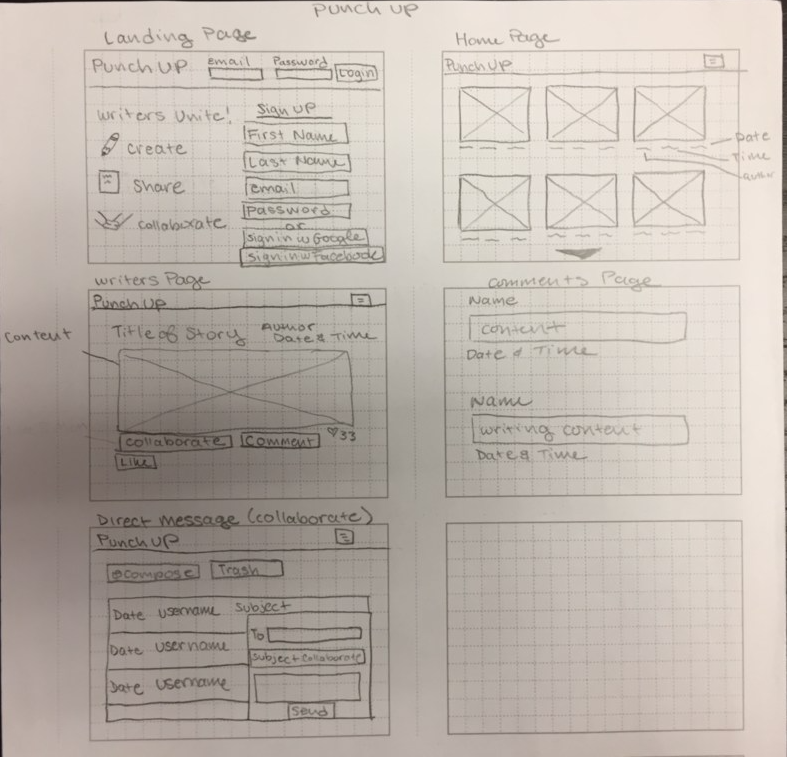 Punch Up
Landing Page
Punch Up Email Password Login
Writers Unite!
create
Share
collaborate
Sign Up
First Name
Last Name
email
Password
or
Sign in w Google
Sign in w Facebook
Home Page
Punch Up
Date
Time
Writers Page
Punch Up
content
Title of Story
Author
Date & Time
collaborate Comment ♡33
Like
Comments Page
Name
content
Date & Time
Name
writing content
Date & Time
Direct message (collaborate)
Punch Up
compose Trash
Date username Subject
Date username
Date username
To
Subject Collaborate
Send